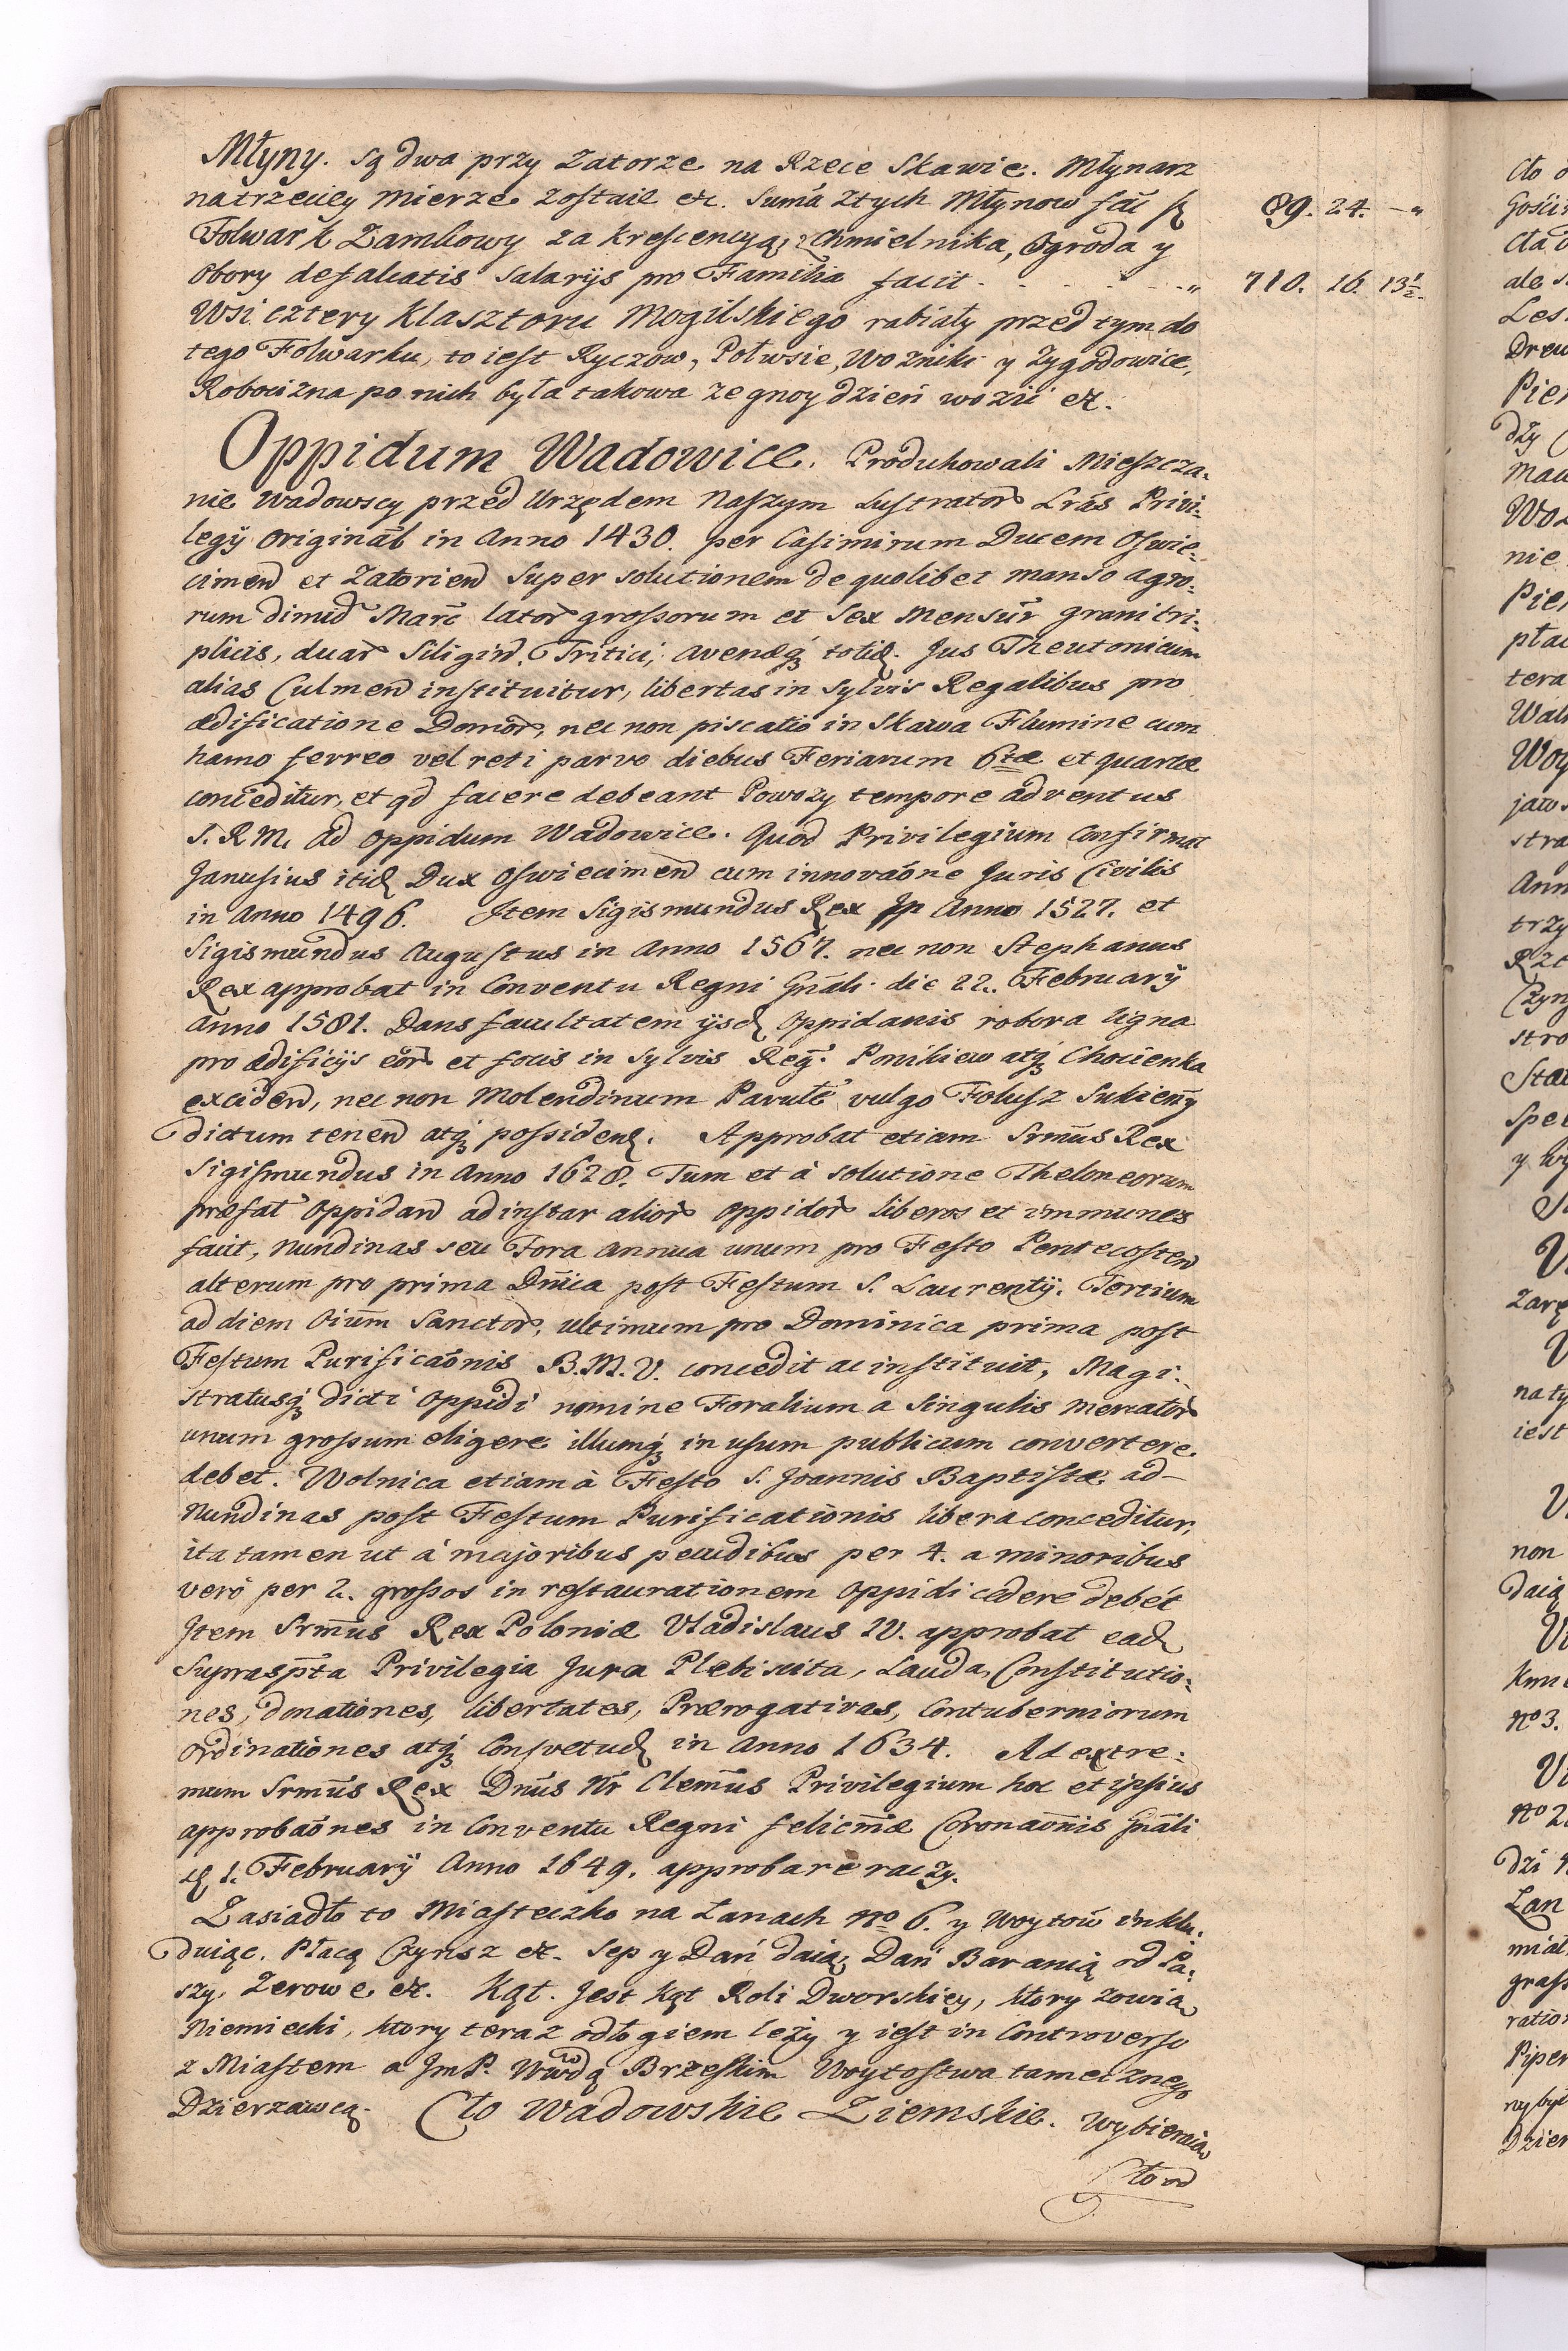 Młyny. są dwa przy Zatorze na Rzece Skawie. Młynarz
na trzeciey mierze zostaie etc. Suma z tych Młynow fac̃ 89. 24. —„
Folwark Zamkowy za krescencyą, Chmielnika, Ogroda y
Obory defalcatis Salarijs pro Familia facit . . . . . „ 710. 16. 13½.
Wsi cztery Klasztoru Mogilskiego rabiały przed tym do
tego Folwarku, to iest Ryczow, Połwsie, Wozniki y Zygodowice,
Robocizna po nich była takowa ze gnoy dzień wozić etc.
Oppidum Wadowice. Produkowali Mieszcza-
nie Wadowscy przed Urzędem Naszym Lustrator Lrãs Privi-
legÿ Originãl in Anno 1430. per Casimirum Ducem Oswie-
cimen et Zatorien Super solutionem de quolibet manso agro-
rum dimid Marc̃ lator grossorum et Sex Mensũr grani tri-
plicis, duar Siligin, Tritici, avenæq totid. Jus Theutonicum
alias Culmen instituitur, libertas in Sylvis Regalibus pro
ædificatione Domor, nec non piscatio in Skawa Flumine cum
hamo ferreo vel reti parvo diebus Feriarum 6tæ et quartæ
conceditur, et qd facere debeant Powozy tempore adventus
S. R. M. ad Oppidum Wadowice. Quod Privilegium Confirmat
Janusius itid Dux Oswiecimen cum innovaõne Juris Civilis
in Anno 1496. Item Sigismundus Rex Anno 1527. et
Sigismundus Augustus in Anno 1567. nec non Stephanus
Rex approbat in Conventu Regni Gñali die 22. Februarÿ
Anno 1581. Dans facultatem ijsd Oppidanis robora ligna
pro ædificijs eor et focis in Sylvis Reg̃. Ponikiew atq Choczenka
exciden, nec non Molendinum Parule vulgo Folusz Sukienny
dictum tenen atq possidend. Approbat etiam Srm̃us Rex
Sigismundus in Anno 1628. Tum et à solutione Theloneorum
præfat Oppidan ad instar alior oppidor liberos et immunes
facit, nundinas seu Fora Annua unum pro Festo Pentecosten
alterum pro prima Dm̃ica post Festum S. Laurentÿ. Tertium
ad diem Oium̃ Sanctor, ultimum pro Dominica prima post
Festum Purificaõnis B. M. V. concedit ac instituit, Magi-
stratusq dicti Oppidi nomine Foralium a Singulis Mercator
unum grossum eligere illumq in usum publicum convertere
debet. Wolnica etiam à Festo S. Joannis Baptistæ ad-
Nundinas post Festum Purificationis libera conceditur,
ita tamen ut à majoribus pecudibus per 4. a minoribus
verò per 2. grossos in restaurationem Oppidi cedere debet
Item Srm̃us Rex Poloniæ Vladislaus IV. approbat ead
Suprasp̃ta Privilegia Jura Plebiscita, Lauda, Constitutio-
nes, donationes, libertates, Prærogativas, Contuberniorum
Ordinationes atq Consvetud in Anno 1634. Ad extre-
mum Srm̃us Rex Dnũs Nr̃ Clem̃us Privilegium hoc et ipsius
approbaõnes in Conventu Regni felicm̃æ Coronaõnis Gñali
d. 1. Februarÿ Anno 1649. approbare raczy.
Zasiadło to Miasteczko na Łanach No 6. y Woytow̃ inklu-
duiąc. Płacą Czynsz etc. Sep y Dań daią, Dań Baranią od Pa-
szy, Zerowe etc. Kąt. Jest Kąt Roli Dworskiey, ktory zowią
Niemiecki, ktory teraz odłogiem leży y iest in Controverso
z Miastem a JmP. Wwdą Brzeskim Woytostwa tamecznego
Dzierzawcą. Cło Wadowskie Ziemskie. Wybieraią
Cło od